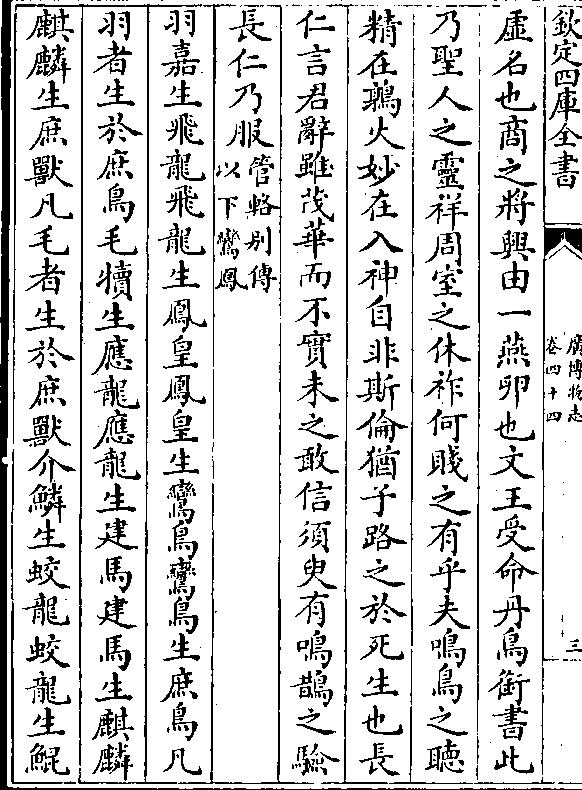 欽定四庫全書
廣博物志
卷四十四
三
虛名也商之將興由一燕卵也文王受命丹鳥銜書此
乃聖人之靈祥周室之休祚何賤之有乎夫鳴鳥之聽
精在鶉火妙在入神自非斯倫猶子路之於死生也長
仁言君辭雖茂華而不實未之敢信須臾有鳴鵲之驗
長仁乃服管輅别傳
以下鸞鳳
羽嘉生飛龍飛龍生鳳皇鳳皇生鸞鳥鸞鳥生庶鳥凡
羽者生於庶鳥毛犢生應龍應龍生建馬建馬生麒麟
麒麟生庶獸凡毛者生於庶獸介鱗生蛟龍蛟龍生鯤